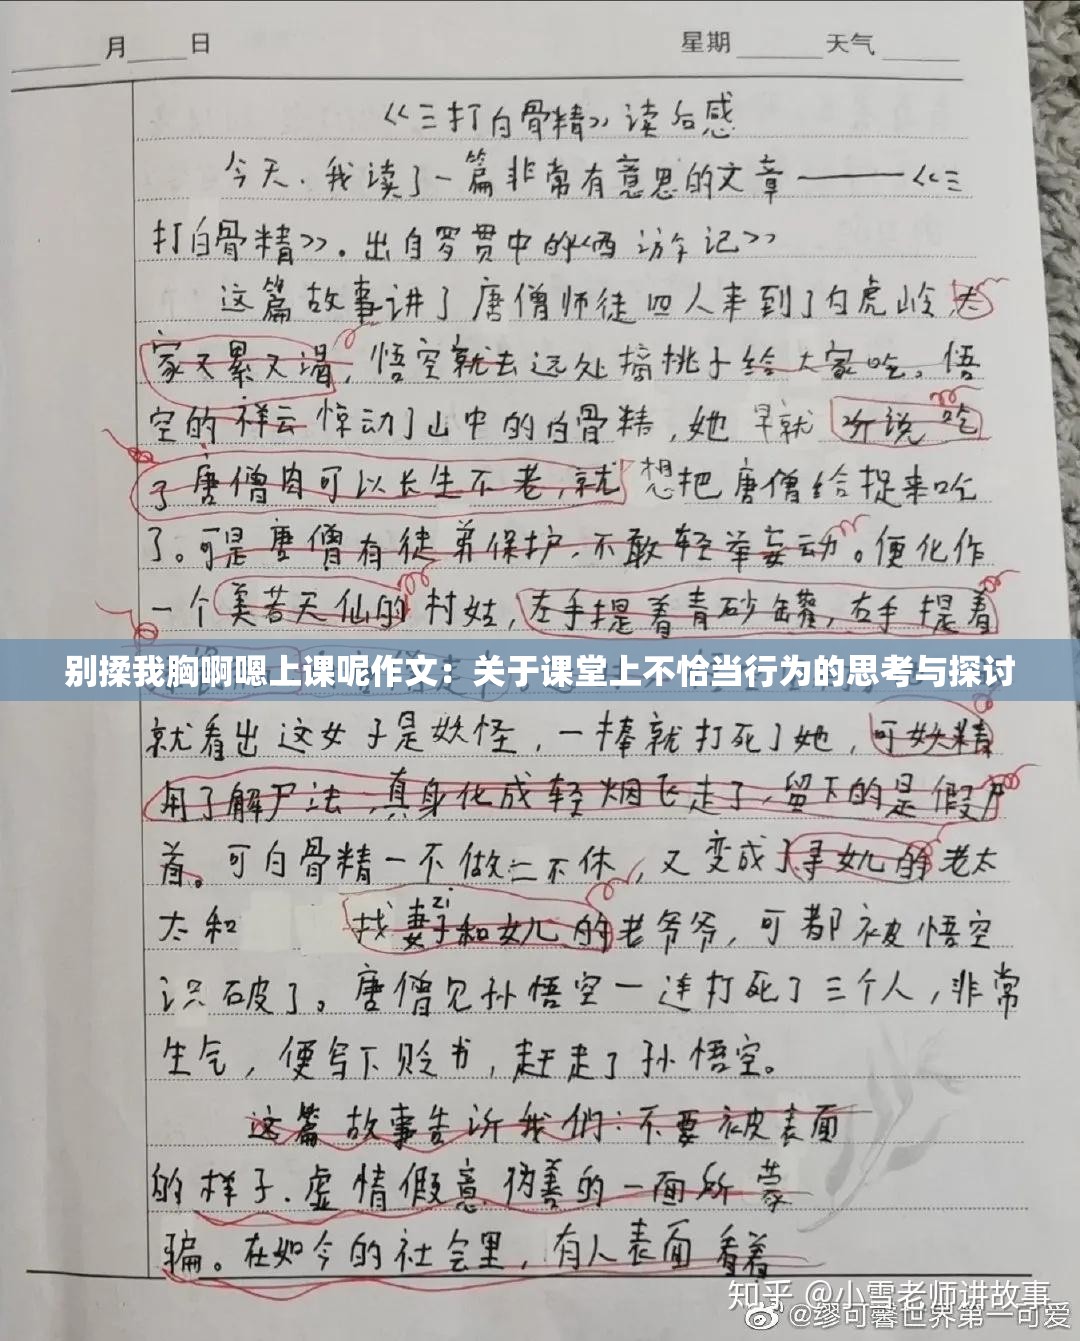 月 日 星期 天气
《三打白骨精》读后感
今天,我读了一篇非常有意思的文章——《三
打白骨精》。出自罗贯中的《西游记》
这篇故事讲了唐僧师徒四人来到了白虎岭,大
家又累又渴,悟空就去远处摘桃子给大家吃。悟
空的祥云惊动了山中的白骨精,她早就听说吃
了唐僧肉可以长生不老,就想把唐僧给捉来吃
了。可是唐僧有徒弟保护,不敢轻举妄动。便化作
一个美若天仙的村姑,左手提着青砂罐,右手提着
别揉我胸啊嗯上课呢作文:关于课堂上不恰当行为的思考与探讨
就看出这女子是妖怪,一棒就打死了她,可妖精
用了解尸法,真身化成轻烟飞走了,留下的是假尸
首。可白骨精一不做二不休,又变成了寻女儿的老太
太和 找妻子和女儿的老爷爷,可都被悟空
zi
识破了。唐僧见孙悟空一连打死了三个人,非常
生气,便写下贬书,赶走了孙悟空。
这篇故事告诉我们:不要被表面
的样子、虚情假意伪善的一面所蒙
骗。在如今的社会里,有人表面看着
知乎 @小雪老师讲故事
@缪可馨世界第一可爱